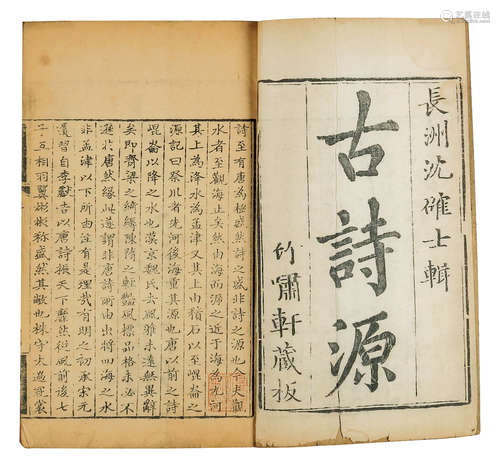 長洲沈確士輯
古詩源
竹嘯軒藏板
詩至有唐為極盛然詩之盛非詩之源也今夫觀
水者至觀海止矣然由海而溯之近于海為九河
其上為洚水為孟津又其上由積石以至崐崙之
源記曰祭川者先河後海重其源也唐以前之詩
崐崙以降之水也漢京魏氏去風雅未遠無異辭
矣即齊梁之綺縟陳隋之輕豔風標品格未必不
遜於唐然緣此遂謂非唐詩所由出將四海之水
非孟津以下所由注有是理哉有明之初承宋元
遺習自李獻吉以唐詩振天下靡然從風前後七
子互相羽翼彬彬稱盛然其敝也株守太過冠裳